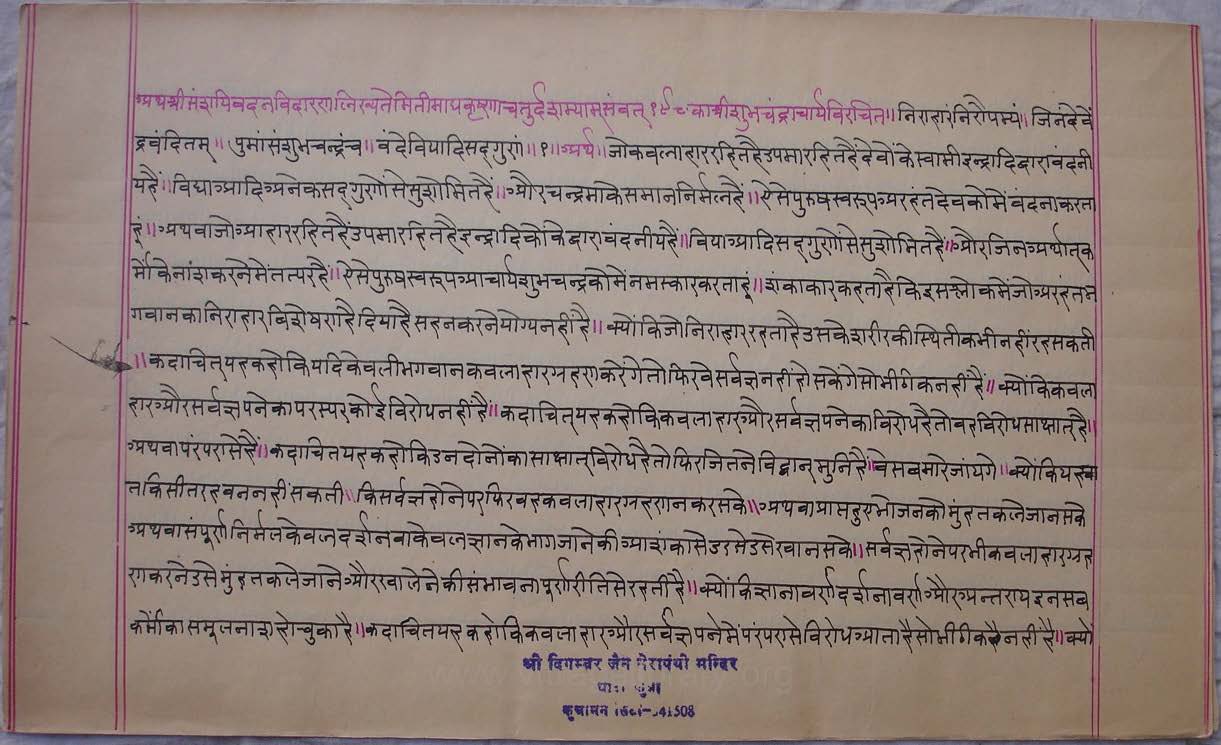 अथश्रीसंशयिवदनविदारणलिख्यतेमितीमाघकृष्णाचतुर्दशम्यामसंवत् १९८ काश्रीशुभचंद्राचार्यविरचित॥ निराहारंनिरौपम्यं॥ जिनंदेवें
द्रवंदितम्॥ पुमांसंशुभचन्द्रंच॥ वंदेविद्यादिसद्गुणं॥१॥ अर्थ॥ जोकवलाहाररहितहैउपमारहितहैंदेवोंकेस्वामीइन्द्रादिद्वारावंदनी
यहैं॥ विद्याआदिअनेकसद्गुणोंसेसुशोभितहैं॥ औरचन्द्रमाकेसमाननिर्मलहैं॥ ऐसेपुरुषस्वरूपअरहंतदेवकोमेंवंदनाकरता
हूं॥ अथवाजोआहाररहितहैंउपमारहितहैइन्द्रादिकोंकेद्वारावंदनीयहैं॥ विद्याआदिसद्गुणोंसेसुशोभितहैं॥ औरजिनअर्थातक
र्मोंकेनांशकरनेमेंतत्परहैं॥ ऐसेपुरुषस्वरूपआचार्यशुभचन्द्रकोमेंनमस्कारकरताहूं॥ शंकाकारकहताहैकिइसश्लोकमेंजोअरहंतभ
गवानकानिराहारविशेषणहैदियाहैसहनकरनेयोग्यनहींहै॥ क्योंकिजोनिराहाररहताहैउसकेशरीरकीस्थितीकभीनहींरहसकती
॥ कदाचित्यहकहोकियदिकेवलीभगवानकवलाहारग्रहणकरेंगेतोफिरवेसर्वज्ञनहींहोसकेंगेसोभीठीकनहींहैं॥ क्योंकिकवला
हारऔरसर्वज्ञपनेकापरस्परकोईविरोधनहींहैं॥ कदाचित्यहकहोकिकवलाहारऔरसर्वज्ञपनेकाविरोधहैतोवहविरोधसाक्षात्है॥
अथवापंरपरासेहैं॥ कदाचितयहकहोकिउनदोनोंकासाक्षात्विरोधहैतोफिरजितनेविद्वान्मुनिहैंवेसबमारेजांयगे॥ क्योंकियहबा
तकिसीतरहबननहींसकती॥ किसर्वज्ञहोनेपरफिरवहकवलाहारग्रहणनकरसके॥ अथवाप्राप्तहुएभोजनकोमुंहतकलेजानसके
अथवासंपूर्णनिर्मलकेवलदर्शनवाकेवलज्ञानकेभागजानेकीआशंकासेउरसेउसेखानसके॥ सर्वज्ञहोनेपरभीकवलाहारग्रह
णकरनेउसेमुंहतकलेजानेऔरखालेनेकीसंभावनापूर्णरीतिसेरहतीहै॥ क्योंकिज्ञानावर्णदर्शनावर्णऔरअन्तरायइनसब
कर्मोंकासमूलनाशहोचुकाहै॥ कदाचितयहकहोकिकवलाहारऔरसर्वज्ञपनेमेंपंरपरासेविरोधआताहैसोभीठीकहैनहींहै॥ क्यों
श्री दिगम्बर जैन तेरापंथी मन्दिर
कुचामन सिटी-341508